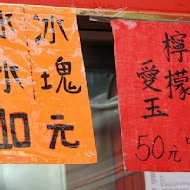 檸檬
愛玉
50元
冰塊
冰冰
10元